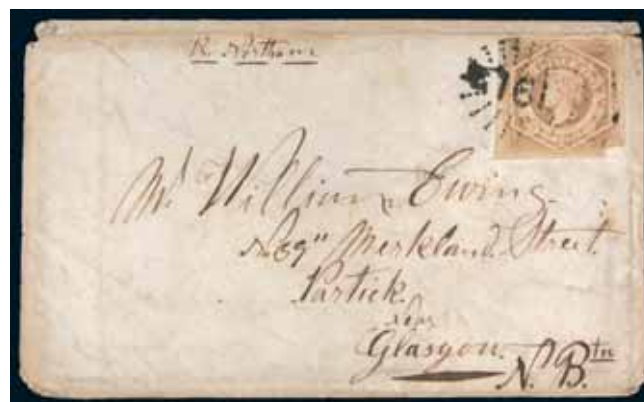 R. Northam
76
Mr. William Ewing.
No 69" Merkland Street
Partick.
near
Glasgow.
N. Btn